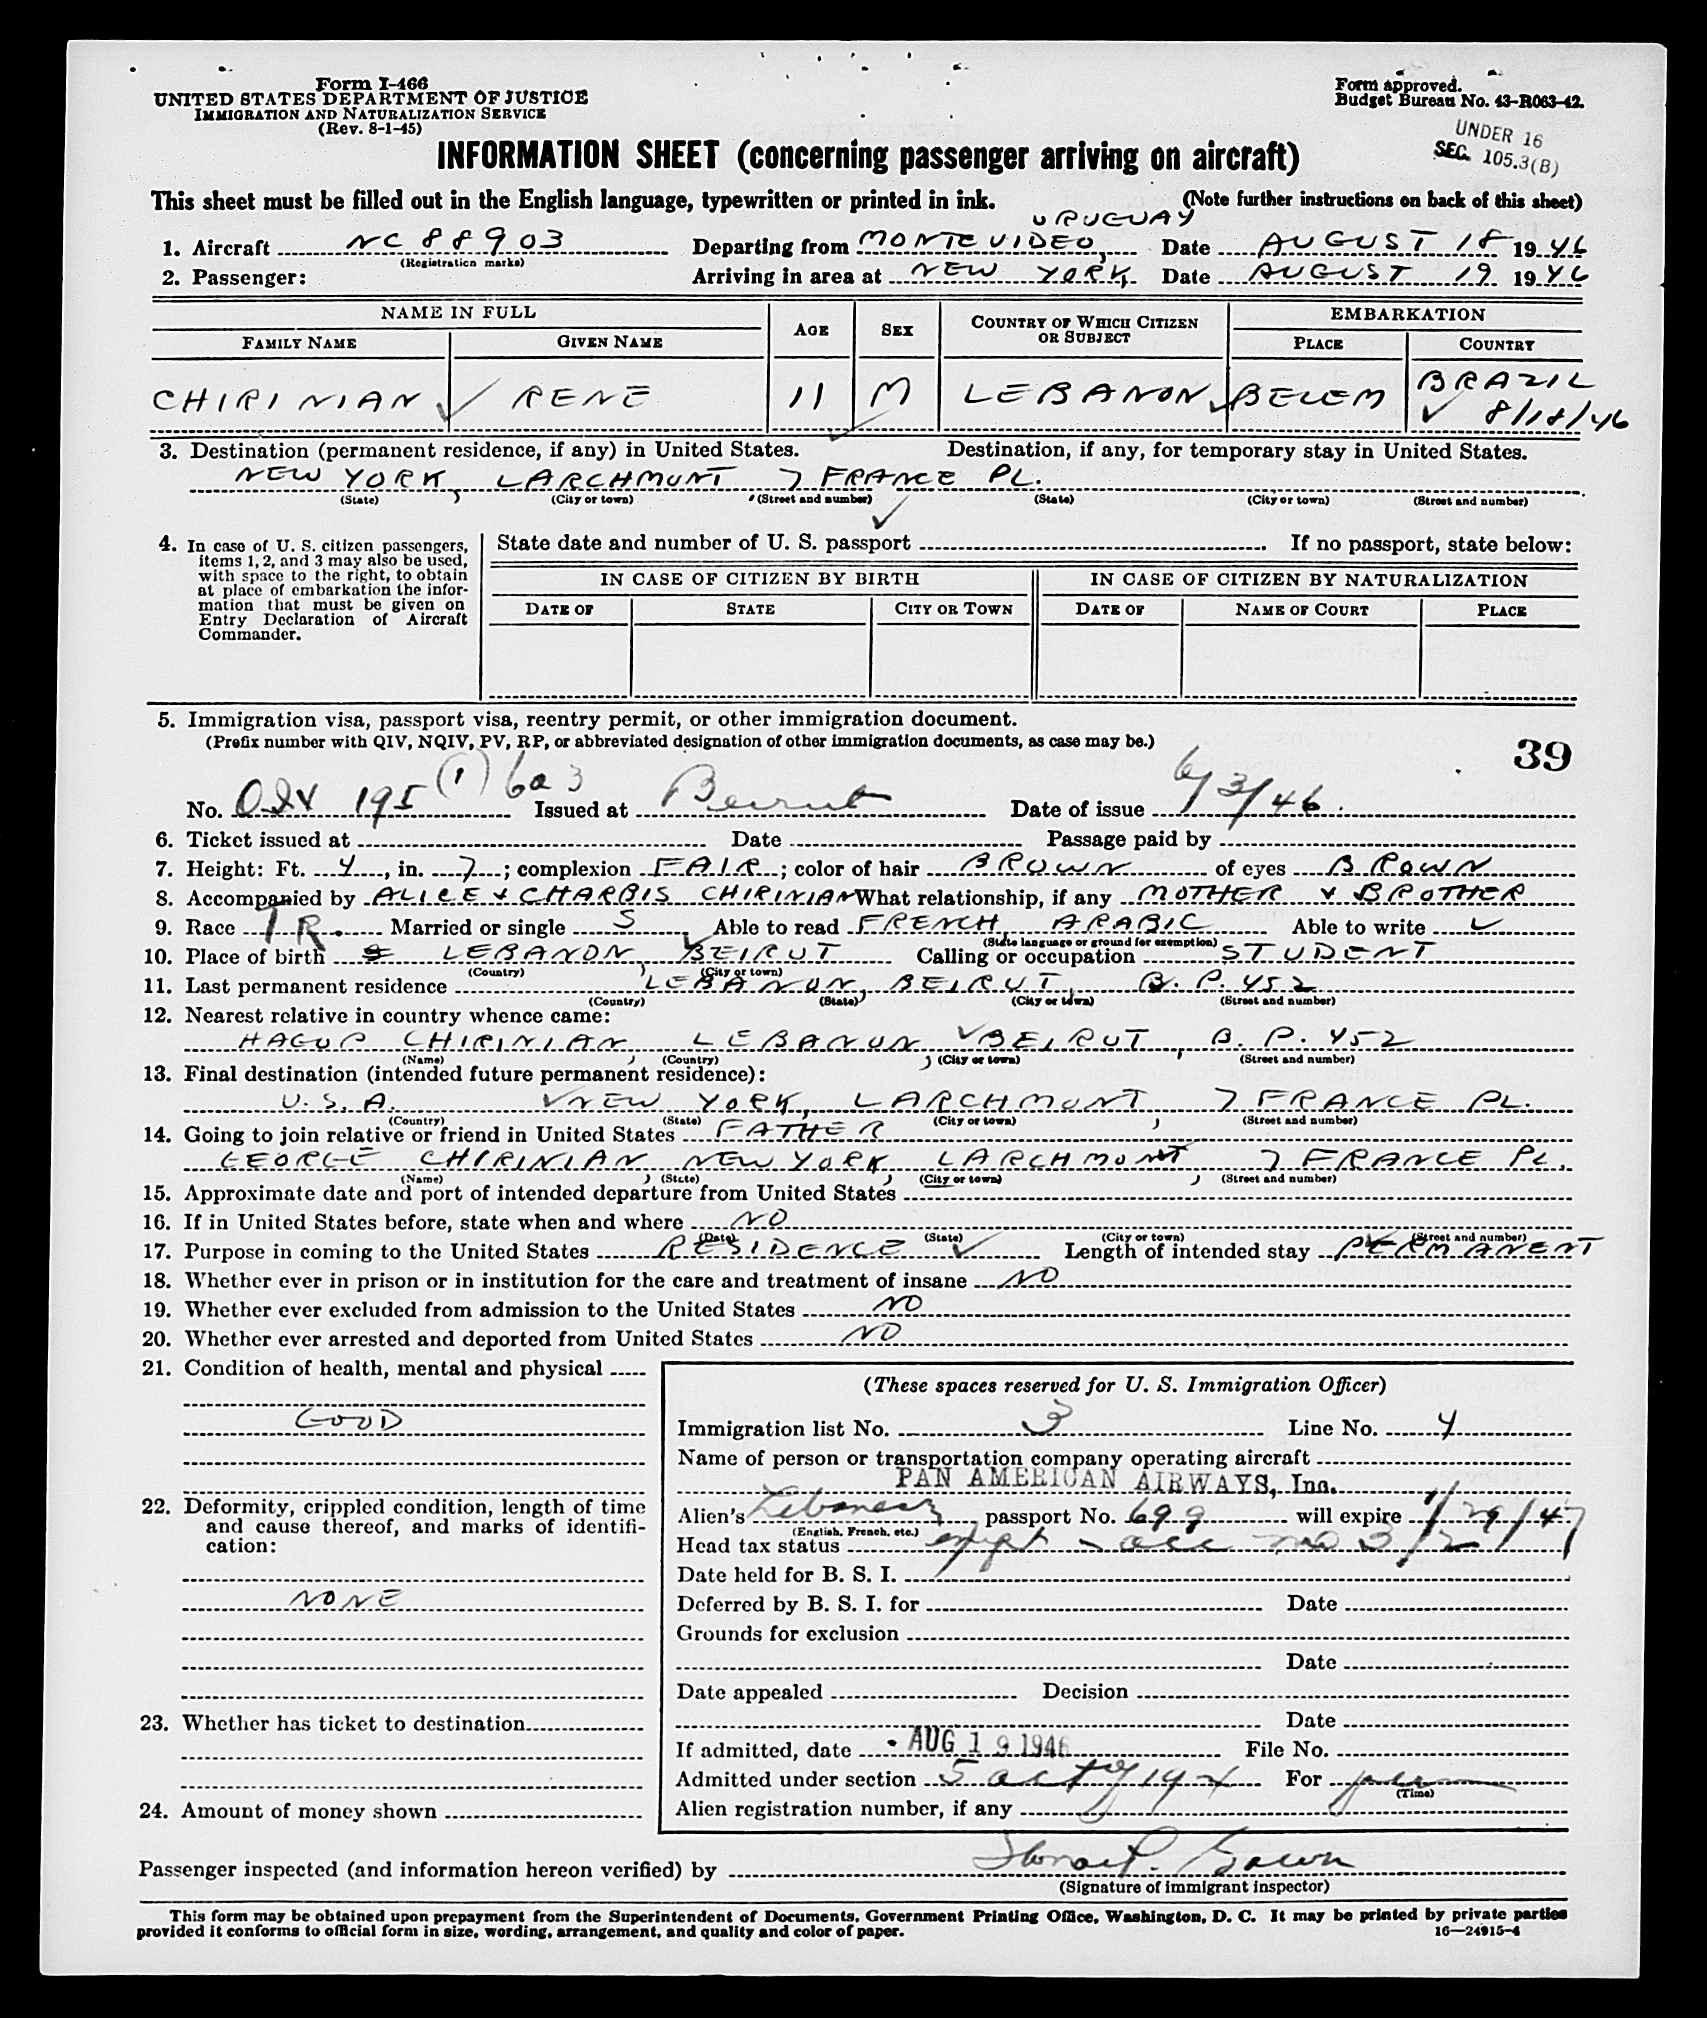 Form I-466
UNITED STATES DEPARTMENT OF JUSTICE
IMMIGRATION AND NATURALIZATION SERVICE
(Rev. 8-1-45)
Form approved.
Budget Bureau No. 43-R063-42.
UNDER 16
SEC. 105.3(B)
INFORMATION SHEET (concerning passenger arriving on aircraft)
This sheet must be filled out in the English language, typewritten or printed in ink. (Note further instructions on back of this sheet)
URUGUAY
1. Aircraft NC 88903 Departing from MONTEVIDEO, Date AUGUST 18 1946
(Registration marks)
2. Passenger: Arriving in area at NEW YORK, Date AUGUST 19 1946
NAME IN FULL AGE SEX COUNTRY OF WHICH CITIZEN OR SUBJECT EMBARKATION
FAMILY NAME GIVEN NAME PLACE COUNTRY
CHIRINIAN RENE 11 M LEBANON BELEM BRAZIL
8/18/46
3. Destination (permanent residence, if any) in United States. Destination, if any, for temporary stay in United States.
NEW YORK, LARCHMONT 7 FRANCE PL.
(State) (City or town) (Street and number) (State) (City or town) (Street and number)
4. In case of U. S. citizen passengers, items 1, 2, and 3 may also be used, with space to the right, to obtain at place of embarkation the information that must be given on Entry Declaration of Aircraft Commander.
State date and number of U. S. passport . If no passport, state below:
IN CASE OF CITIZEN BY BIRTH IN CASE OF CITIZEN BY NATURALIZATION
DATE OF STATE CITY OR TOWN DATE OF NAME OF COURT PLACE
5. Immigration visa, passport visa, reentry permit, or other immigration document.
(Prefix number with QIV, NQIV, PV, RP, or abbreviated designation of other immigration documents, as case may be.)
39
No. QIV 195 (1) 6a3 Issued at Beirut Date of issue 6/3/46
6. Ticket issued at Date Passage paid by
7. Height: Ft. 4, in. 7; complexion FAIR; color of hair BROWN of eyes BROWN
8. Accompanied by ALICE & CHARBIS CHIRINIAN What relationship, if any MOTHER & BROTHER
9. Race TR. Married or single S Able to read FRENCH, ARABIC Able to write ✓
(State language or ground for exemption)
10. Place of birth LEBANON, BEIRUT Calling or occupation STUDENT
(Country) (City or town)
11. Last permanent residence LEBANON, BEIRUT, B. P. 452
(Country) (State) (City or town) (Street and number)
12. Nearest relative in country whence came:
HAGOP CHIRINIAN, LEBANON, BEIRUT, B. P. 452
(Name) (Country) (City or town) (Street and number)
13. Final destination (intended future permanent residence):
U. S. A. NEW YORK, LARCHMONT, 7 FRANCE PL.
(Country) (State) (City or town) (Street and number)
14. Going to join relative or friend in United States FATHER
GEORGE CHIRINIAN, NEW YORK, LARCHMONT, 7 FRANCE PL.
(Name) (State) (City or town) (Street and number)
15. Approximate date and port of intended departure from United States
16. If in United States before, state when and where NO
(Date) (State) (City or town) (Street and number)
17. Purpose in coming to the United States RESIDENCE Length of intended stay PERMANENT
18. Whether ever in prison or in institution for the care and treatment of insane NO
19. Whether ever excluded from admission to the United States NO
20. Whether ever arrested and deported from United States NO
21. Condition of health, mental and physical
GOOD
22. Deformity, crippled condition, length of time and cause thereof, and marks of identification:
NONE
23. Whether has ticket to destination
24. Amount of money shown
(These spaces reserved for U. S. Immigration Officer)
Immigration list No. 3 Line No. 4
Name of person or transportation company operating aircraft
PAN AMERICAN AIRWAYS, Inc.
Alien's Lebanese passport No. 699 will expire 1/29/47
(English, French, etc.)
Head tax status
Date held for B. S. I.
Deferred by B. S. I. for Date
Grounds for exclusion
Date
Date appealed Decision
Date
If admitted, date AUG 19 1946 File No.
Admitted under section 5 act of 1924 For perm
(Time)
Alien registration number, if any
Passenger inspected (and information hereon verified) by
(Signature of immigrant inspector)
This form may be obtained upon prepayment from the Superintendent of Documents, Government Printing Office, Washington, D. C. It may be printed by private parties
provided it conforms to official form in size, wording, arrangement, and quality and color of paper. 16—24915-4